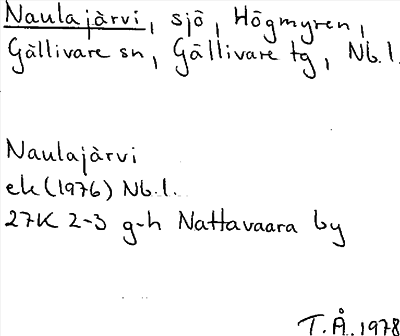 Naulajärvi, sjö, Högmyren,
Gällivare sn, Gällivare tg, Nb.l.
Naulajärvi
ek (1976) Nb.l.
27K 2-3 g-h Nattavaara by
T.Å. 1978